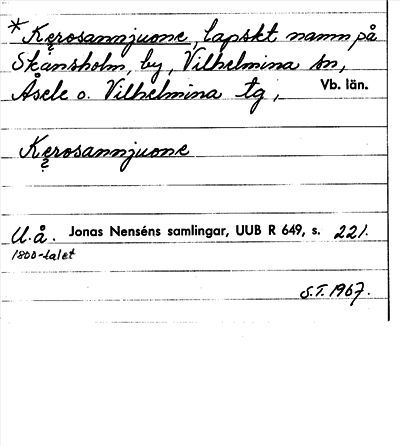 * Kęrosannjuone, lapskt namn på
Skansholm, by, Vilhelmina sn,
Åsele o. Vilhelmina tg, Vb. län.
Kęrosannjuone
U.å. Jonas Nenséns samlingar, UUB R 649, s. 221.
1800-talet
S.T. 1967.